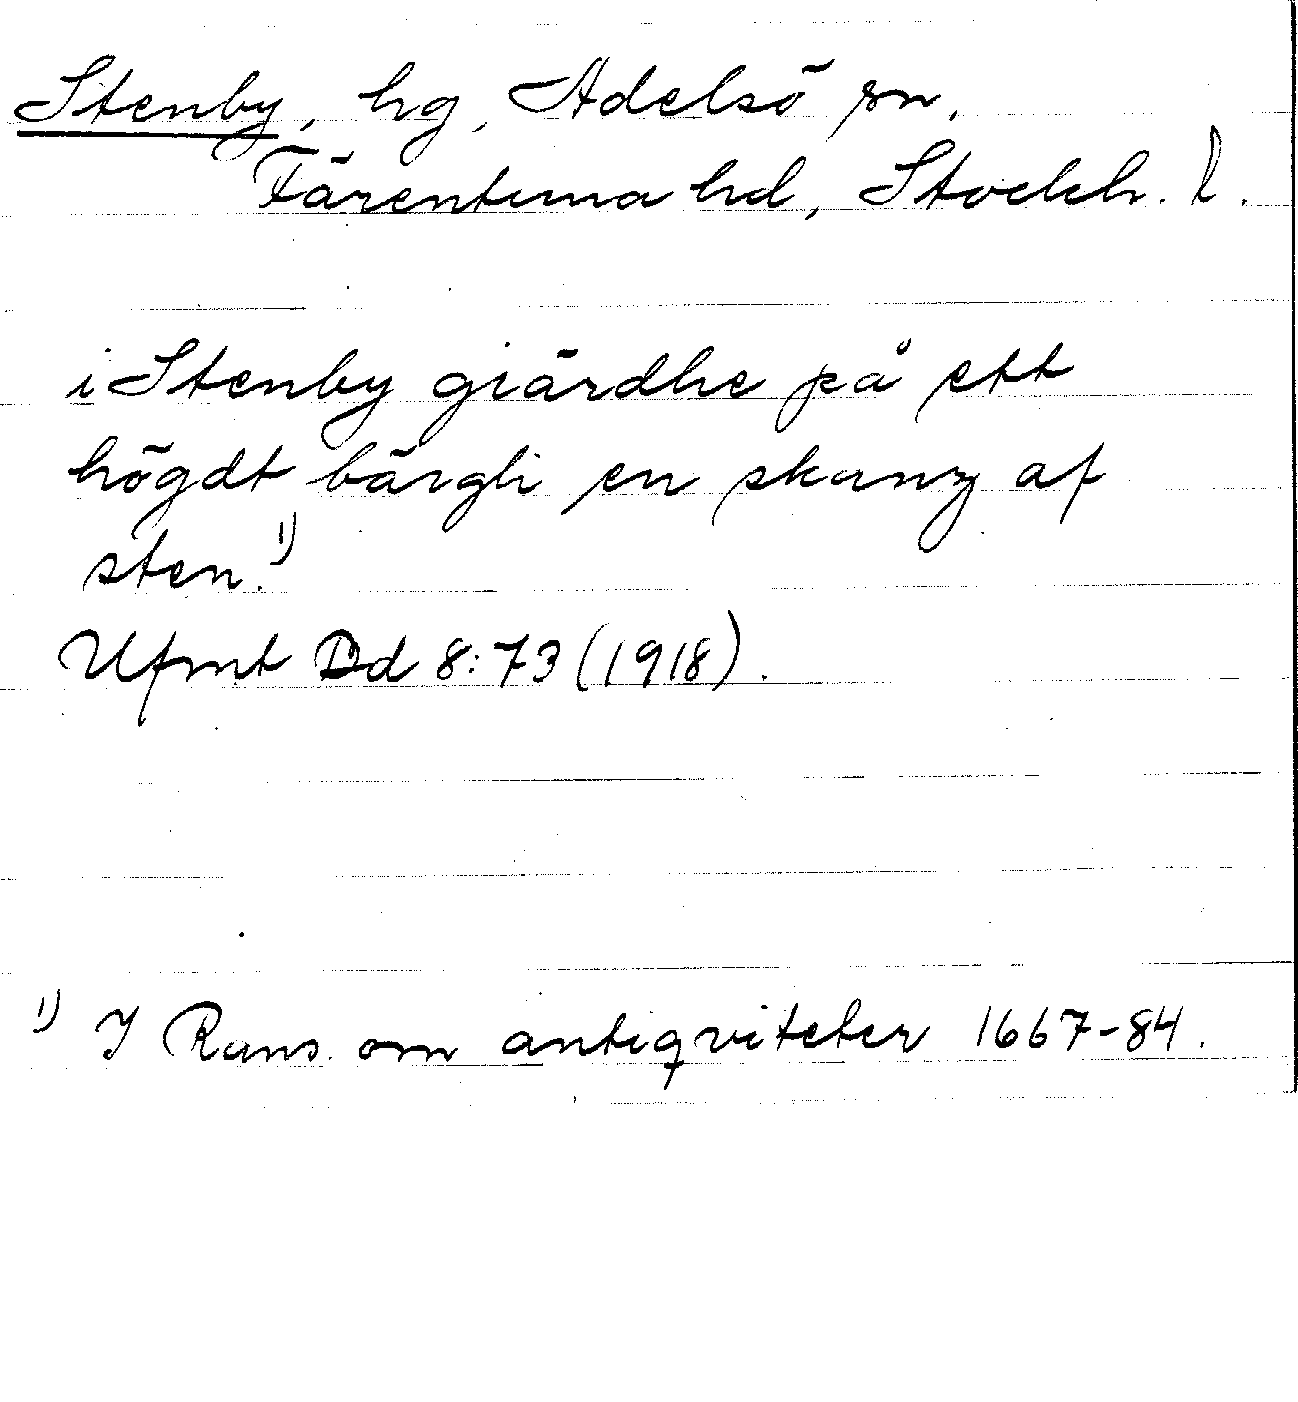 Stenby, hg, Adelsö sn,
Färentuna hd, Stockh. l.
i Stenby giärdhe på ett
högdt bärgh en skanz af
sten.¹⁾
Ufmt Dd 8:73 (1918).
¹⁾ I Rans. om antiqviteter 1667-84.